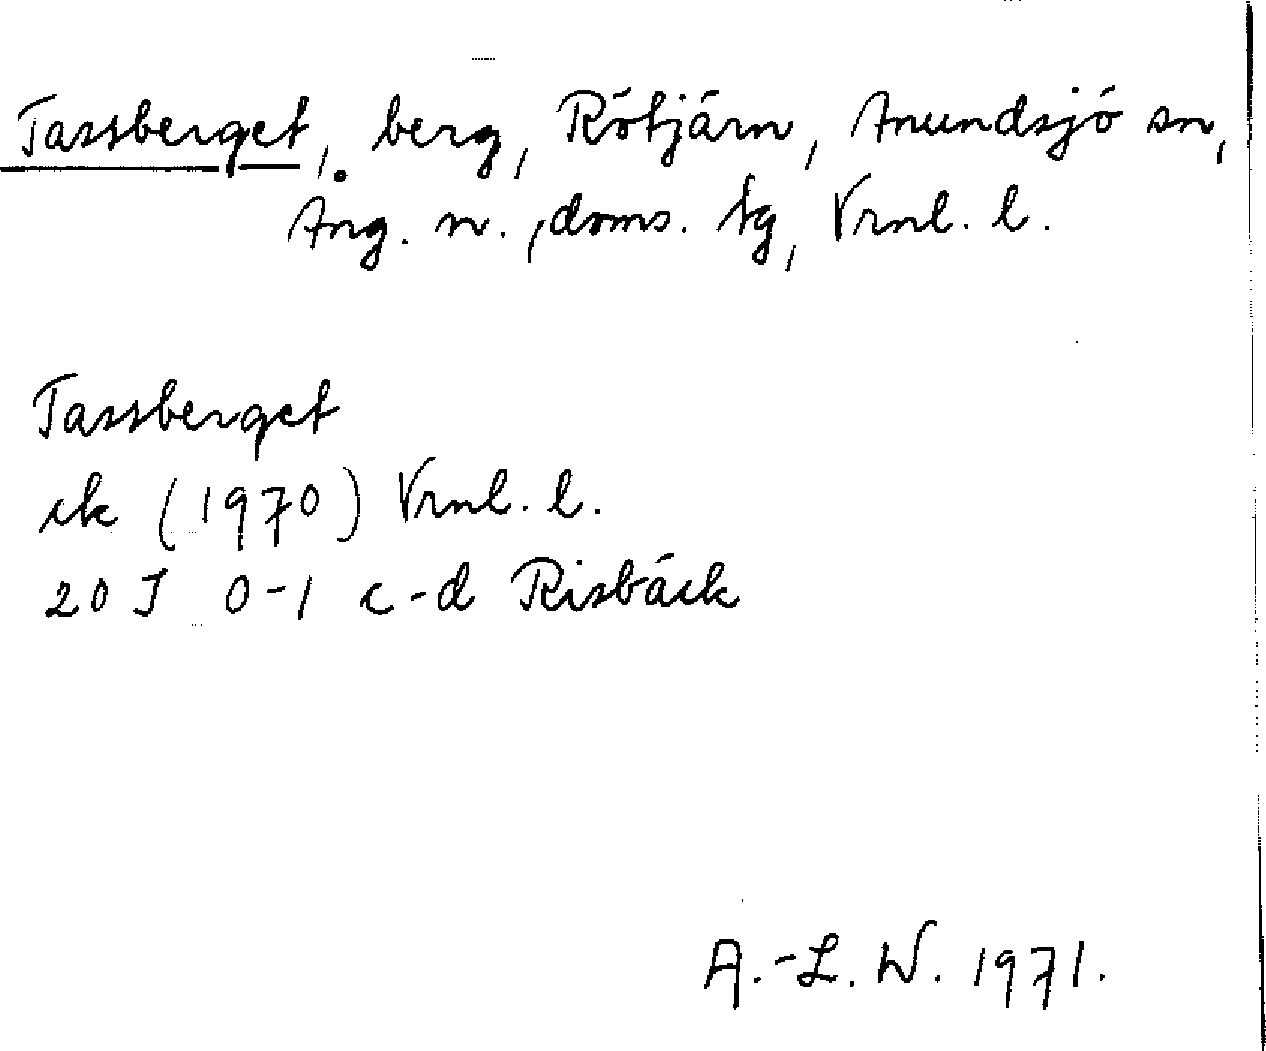 Tassberget, berg, Rötjärn, Anundsjö sn,
Ång. n., doms. tg, Vrnl. l.
Tassberget
ek (1970) Vrnl. l.
20 J 0-1 c-d Risbäck
A.-L. W. 1971.